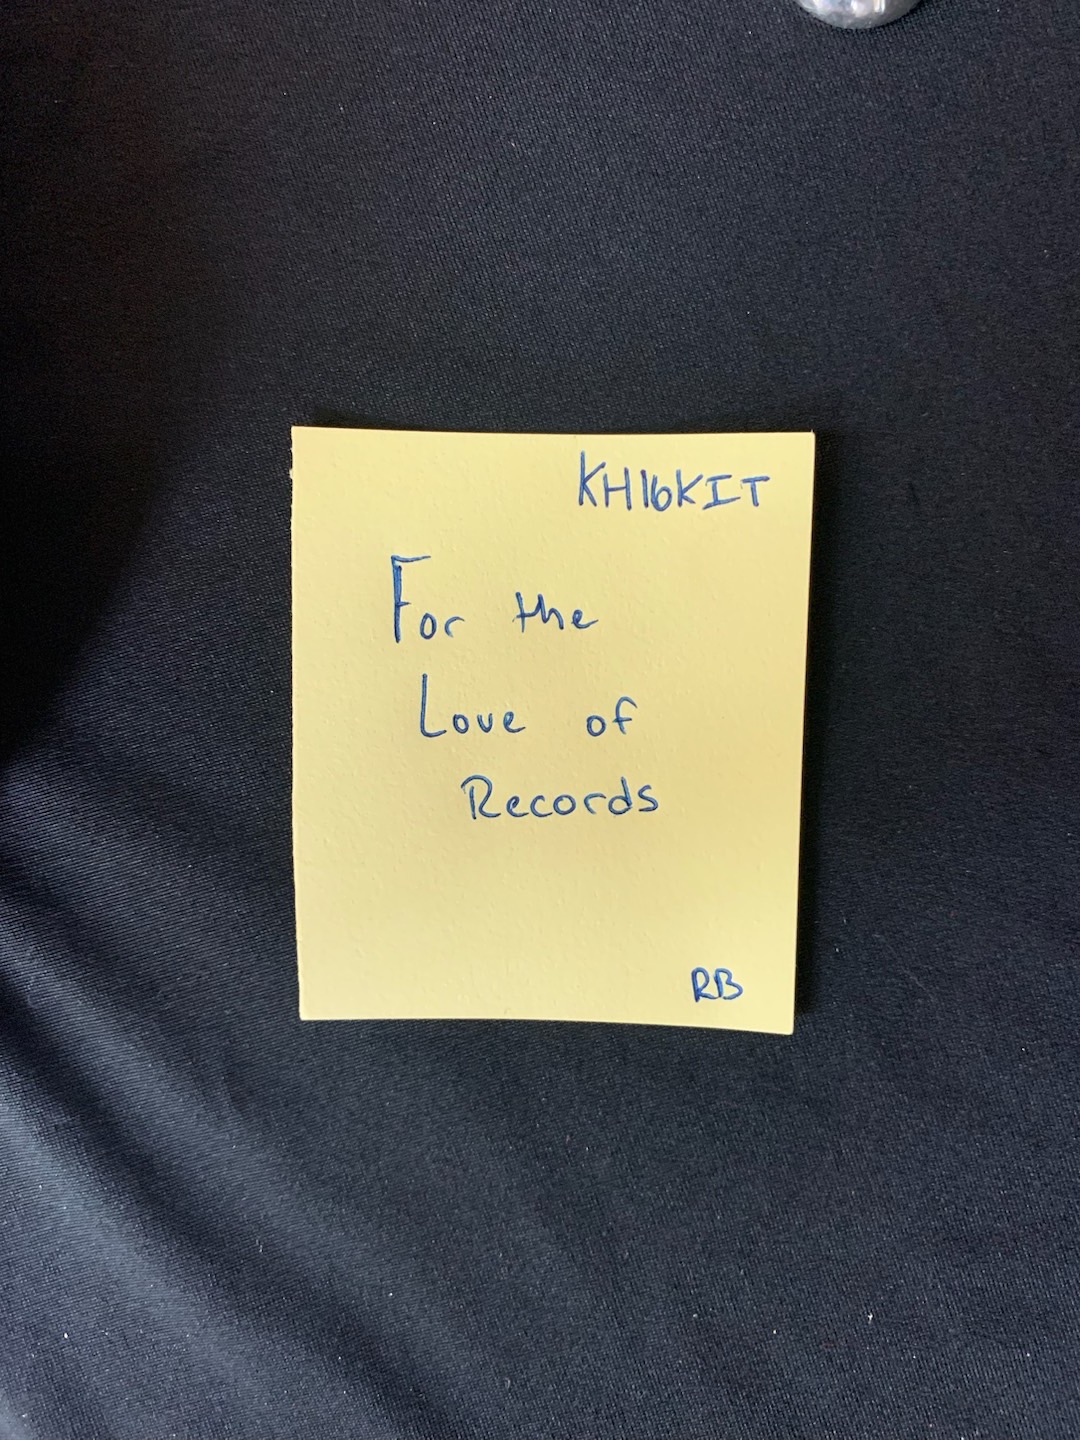 KH16KIT
For the
Love of
Records
RB